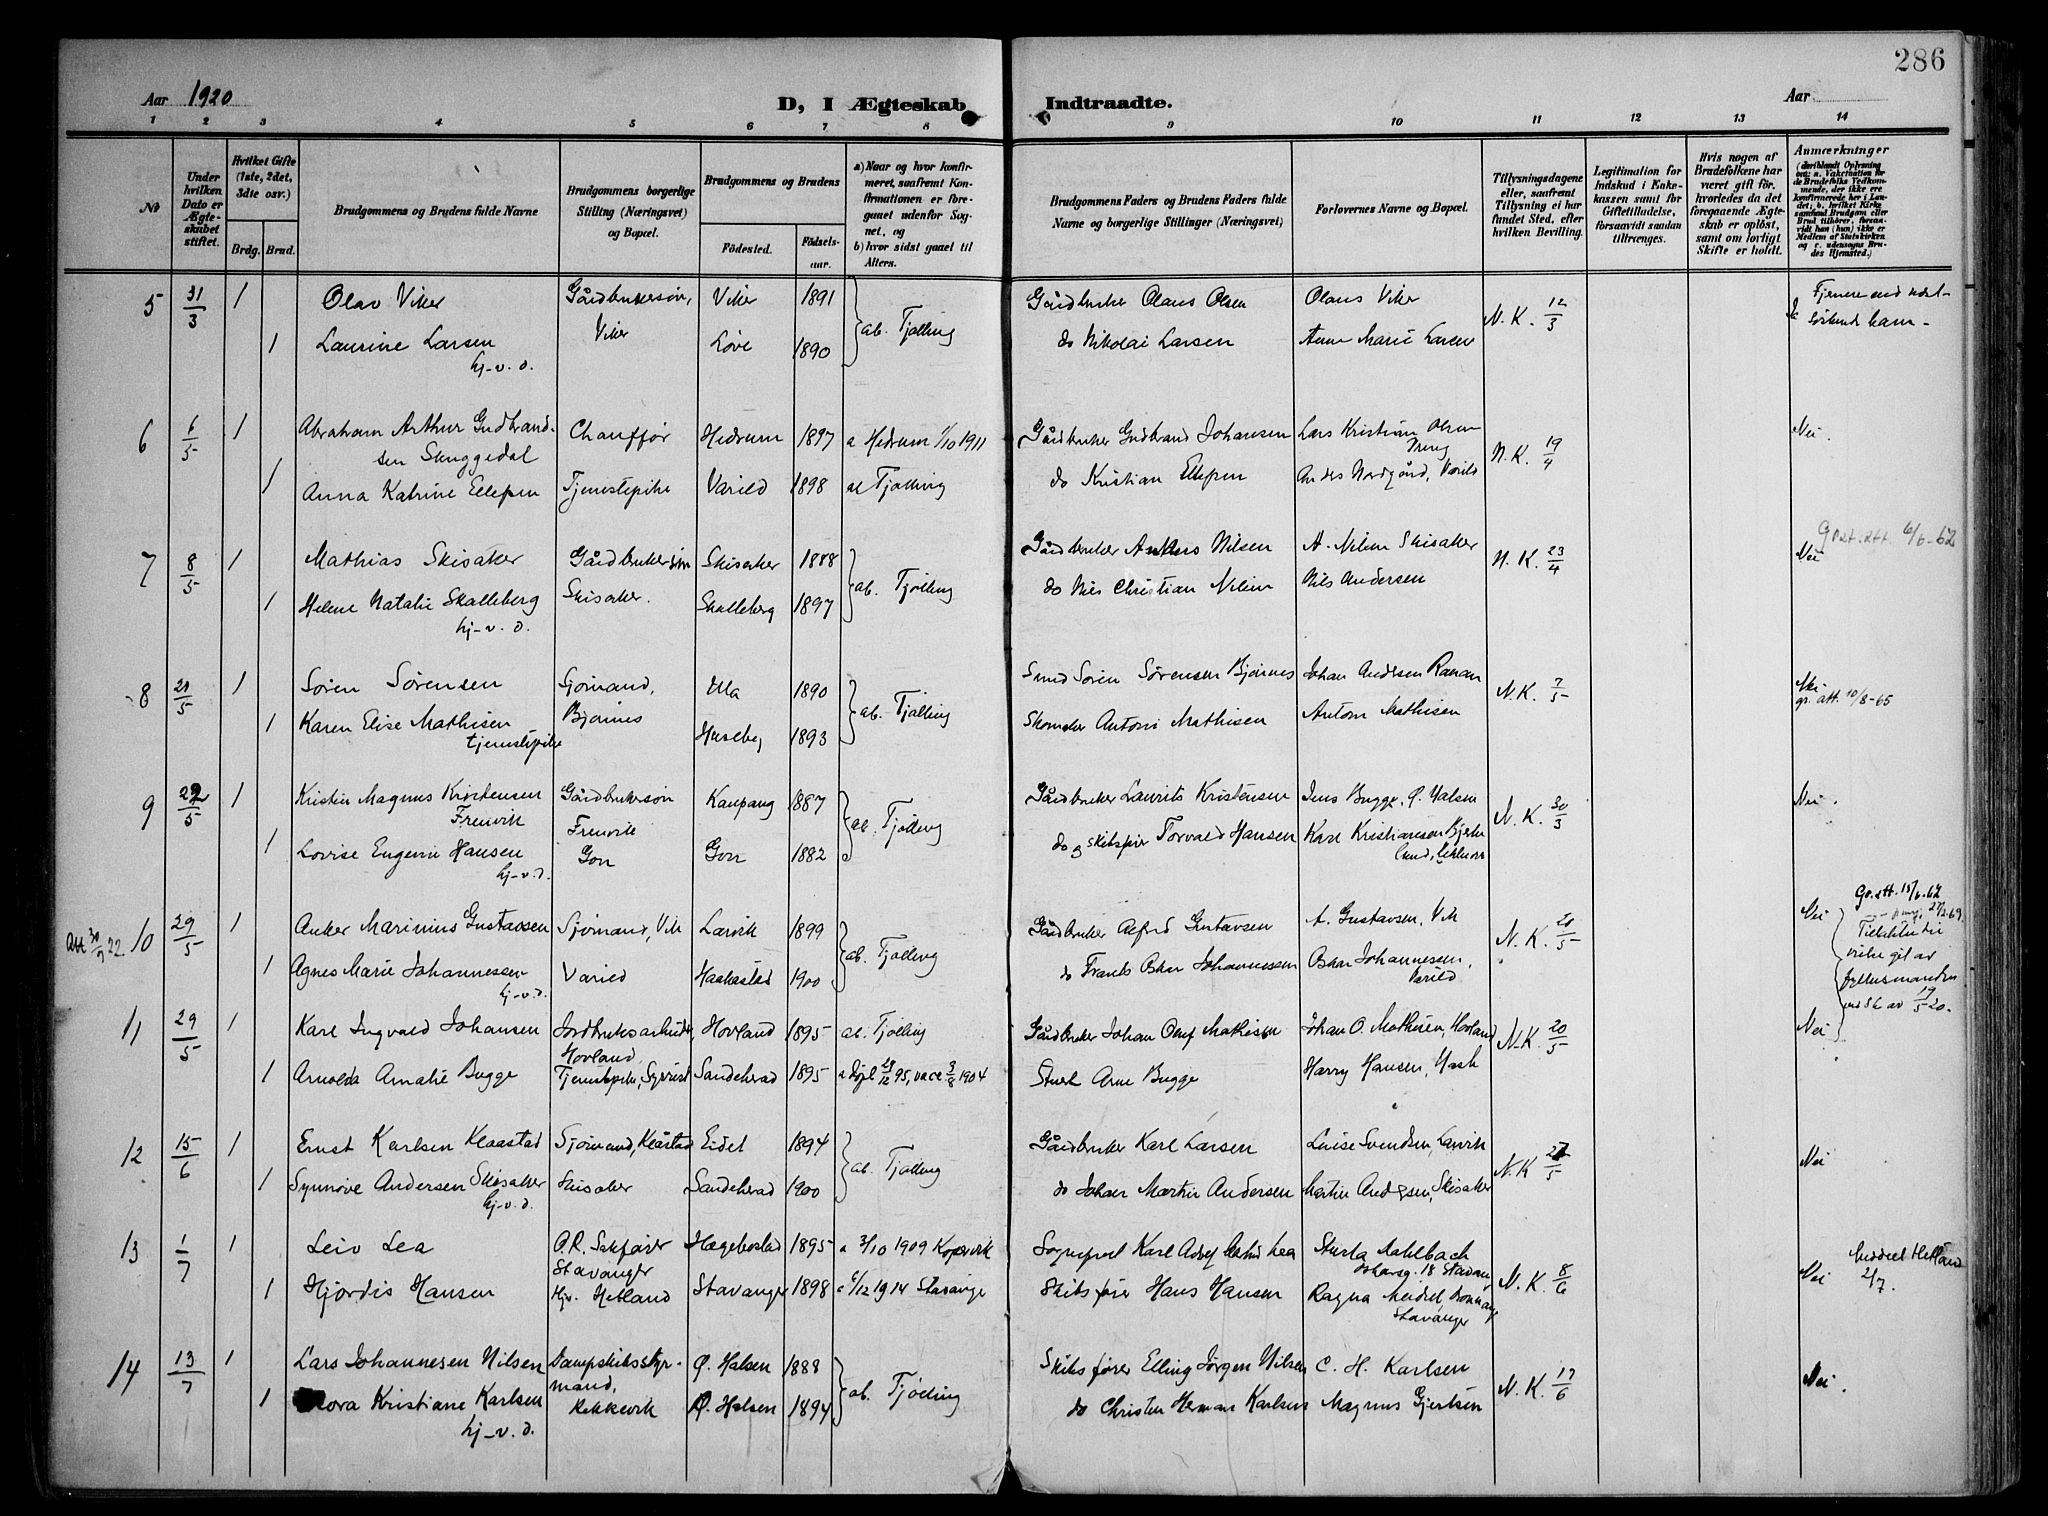 286
Aar 1920
D, I Ægteskab Indtraadte.
Aar
1 2 3 4 5 6 7 8 9 10 11 12 13 14
Nr
Under hvilken Dato er Ægteskabet stiftet.
Hvilket Gifte (1ste, 2det, 3die osv.)
Brdg. Brud.
Brudgommens og Brudens fulde Navne
Brudgommens borgerlige Stilling (Næringsvei) og Bopæl.
Brudgommens og Brudens
Fødested.
Fødselsaar.
a) Naar og hvor konfirmeret, saafremt Konfirmationen er foregaaet udenfor Sognet, og
b) hvor sidst gaaet til Alters.
Brudgommens Faders og Brudens Faders fulde Navne og borgerlige Stillinger (Næringsvei)
Forlovernes Navne og Bopæl.
Tillysningsdagene eller, saafremt Tillysning ei har fundet Sted, efter hvilken Bevilling.
Legitimation for Indskud i Enkekassen samt for Giftetilladelse, forsaavidt saadan tiltrænges.
Hvis nogen af Brudefolkene har været gift før, hvorledes da det foregaaende Ægteskab er opløst, samt om lovligt Skifte er holdt.
Anmærkninger
5 31/3 1 Olav Viker Gårdbrukersøn, Viker 1891 Gårdbruker Olaus Olsen Olaus Viker N. K. 12/3
Viker ab. Tjølling
1 Laurine Larsen Løve 1890 do Nikolai Larsen Anne Marie Larsen
hj-v. d.
6 6/5 1 Abraham Arthur Gudbrandsen Skuggedal Chauffør Hedrum 1897 a Hedrum 1/10 1911 Gårdbruker Gudbrand Johansen Lars Kristian Olsen N. K. 19/4 Nei.
1 Anna Katrine Ellefsen Tjenestepike Varild 1898 ab Tjølling do Kristian Ellefsen Anders Nordgård, Varild
7 8/5 1 Mathias Skisaker Gårdbrukersøn Skisaker 1888 ab. Tjølling Gårdbruker Anders Nilsen A. Nilsen Skisaker N. K. 23/4 Nei
6/6-62
1 Helene Natalie Skalleberg Skisaker. Skalleberg 1897 do Nils Christian Nilsen Nils Andersen
hj-v. d.
8 21/5 1 Søren Sørensen Sjømand, Ula 1890 ab. Tjølling Smed Søren Sørensen Bjønnes Johan Andersen N. K. 7/5 Nei
gr. att. 10/8-65
1 Karen Elise Mathisen Bjønnes Huseby 1893 Skomaker Anton Mathisen Anton Mathisen
tjenestepike
9 22/5 1 Kristen Magnus Kristensen Gårdbrukersøn Kaupang 1887 ab. Tjølling Gårdbruker Laurits Kristensen Jens Bugge, Ø. Halsen N. K. 30/3 Nei.
1 Lovise Eugenie Hansen Gon Gon 1882 do og skibsfører Torvald Hansen Karl Kristiansen
hj-v. d.
Att 30/9 22. 10 29/5 1 Anker Marinius Gustavsen Sjømand, Vik Larvik 1899 ab. Tjølling Gårdbruker Alfred Gustavsen A. Gustavsen, Vik N. K. 20/5 Nei
1 Agnes Marie Johannessen Varild Haakestad 1900 do Frants Oskar Johannessen Oskar Johannessen, Varild
hj-v. d.
Gr. att. 15/6-62
forlovermanden
av 19/5 20.
11 29/5 1 Karl Ingvald Johansen Jordbruksarbeider, Hovland 1895 ab. Tjølling Gårdbruker Johan Oluf Mathisen Johan O. Mathisen, Hovland N. K. 20/5 Nei
Hovland
1 Arnolda Amalie Bugge Tjenestepike, Sandeherad 1895 a døpt 29/12 95, vacc 9/8 1904 Arne Bugge Harry Hansen, Hash
12 15/6 1 Ernst Karlsen Klaastad Sjømand, Klåstad Eidet 1894 ab. Tjølling Gårdbruker Karl Larsen Luise Svendsen, Larvik N. K. 27/5 Nei
1 Synnøve Andersen Skisaker Skisaker Sandeherad 1900 do Johan Martin Andersen Martin Andersen, Skisaker
hj-v. d.
13 1/7 1 Leiv Lea O. R. Sakfører Hægebostad 1895 a 3/10 1909 Kopervik Sogneprest Karl Adolf Lea Sturla N. K. 8/6 Nei
Stavanger 18 Stavan
1 Hjørdis Hansen Hjv. Hetland Stavanger 1898 a 6/12 1914 Stavanger Skibsfører Hans Hansen Ragna Meidel, Stavanger
meddelt Hetland 2/7.
14 13/7 1 Lars Johannesen Nilsen Dampskibsstyrmand, Ø. Halsen 1888 ab. Tjølling Skibsfører Elling Jørgen Nilsen C. H. Karlsen N. K. 17/6 Nei.
1 Kristiane Karlsen Rekkevik Ø. Halsen 1894 do Christen Herman Karlsen Magnus Gjertsen
hj-v. d.